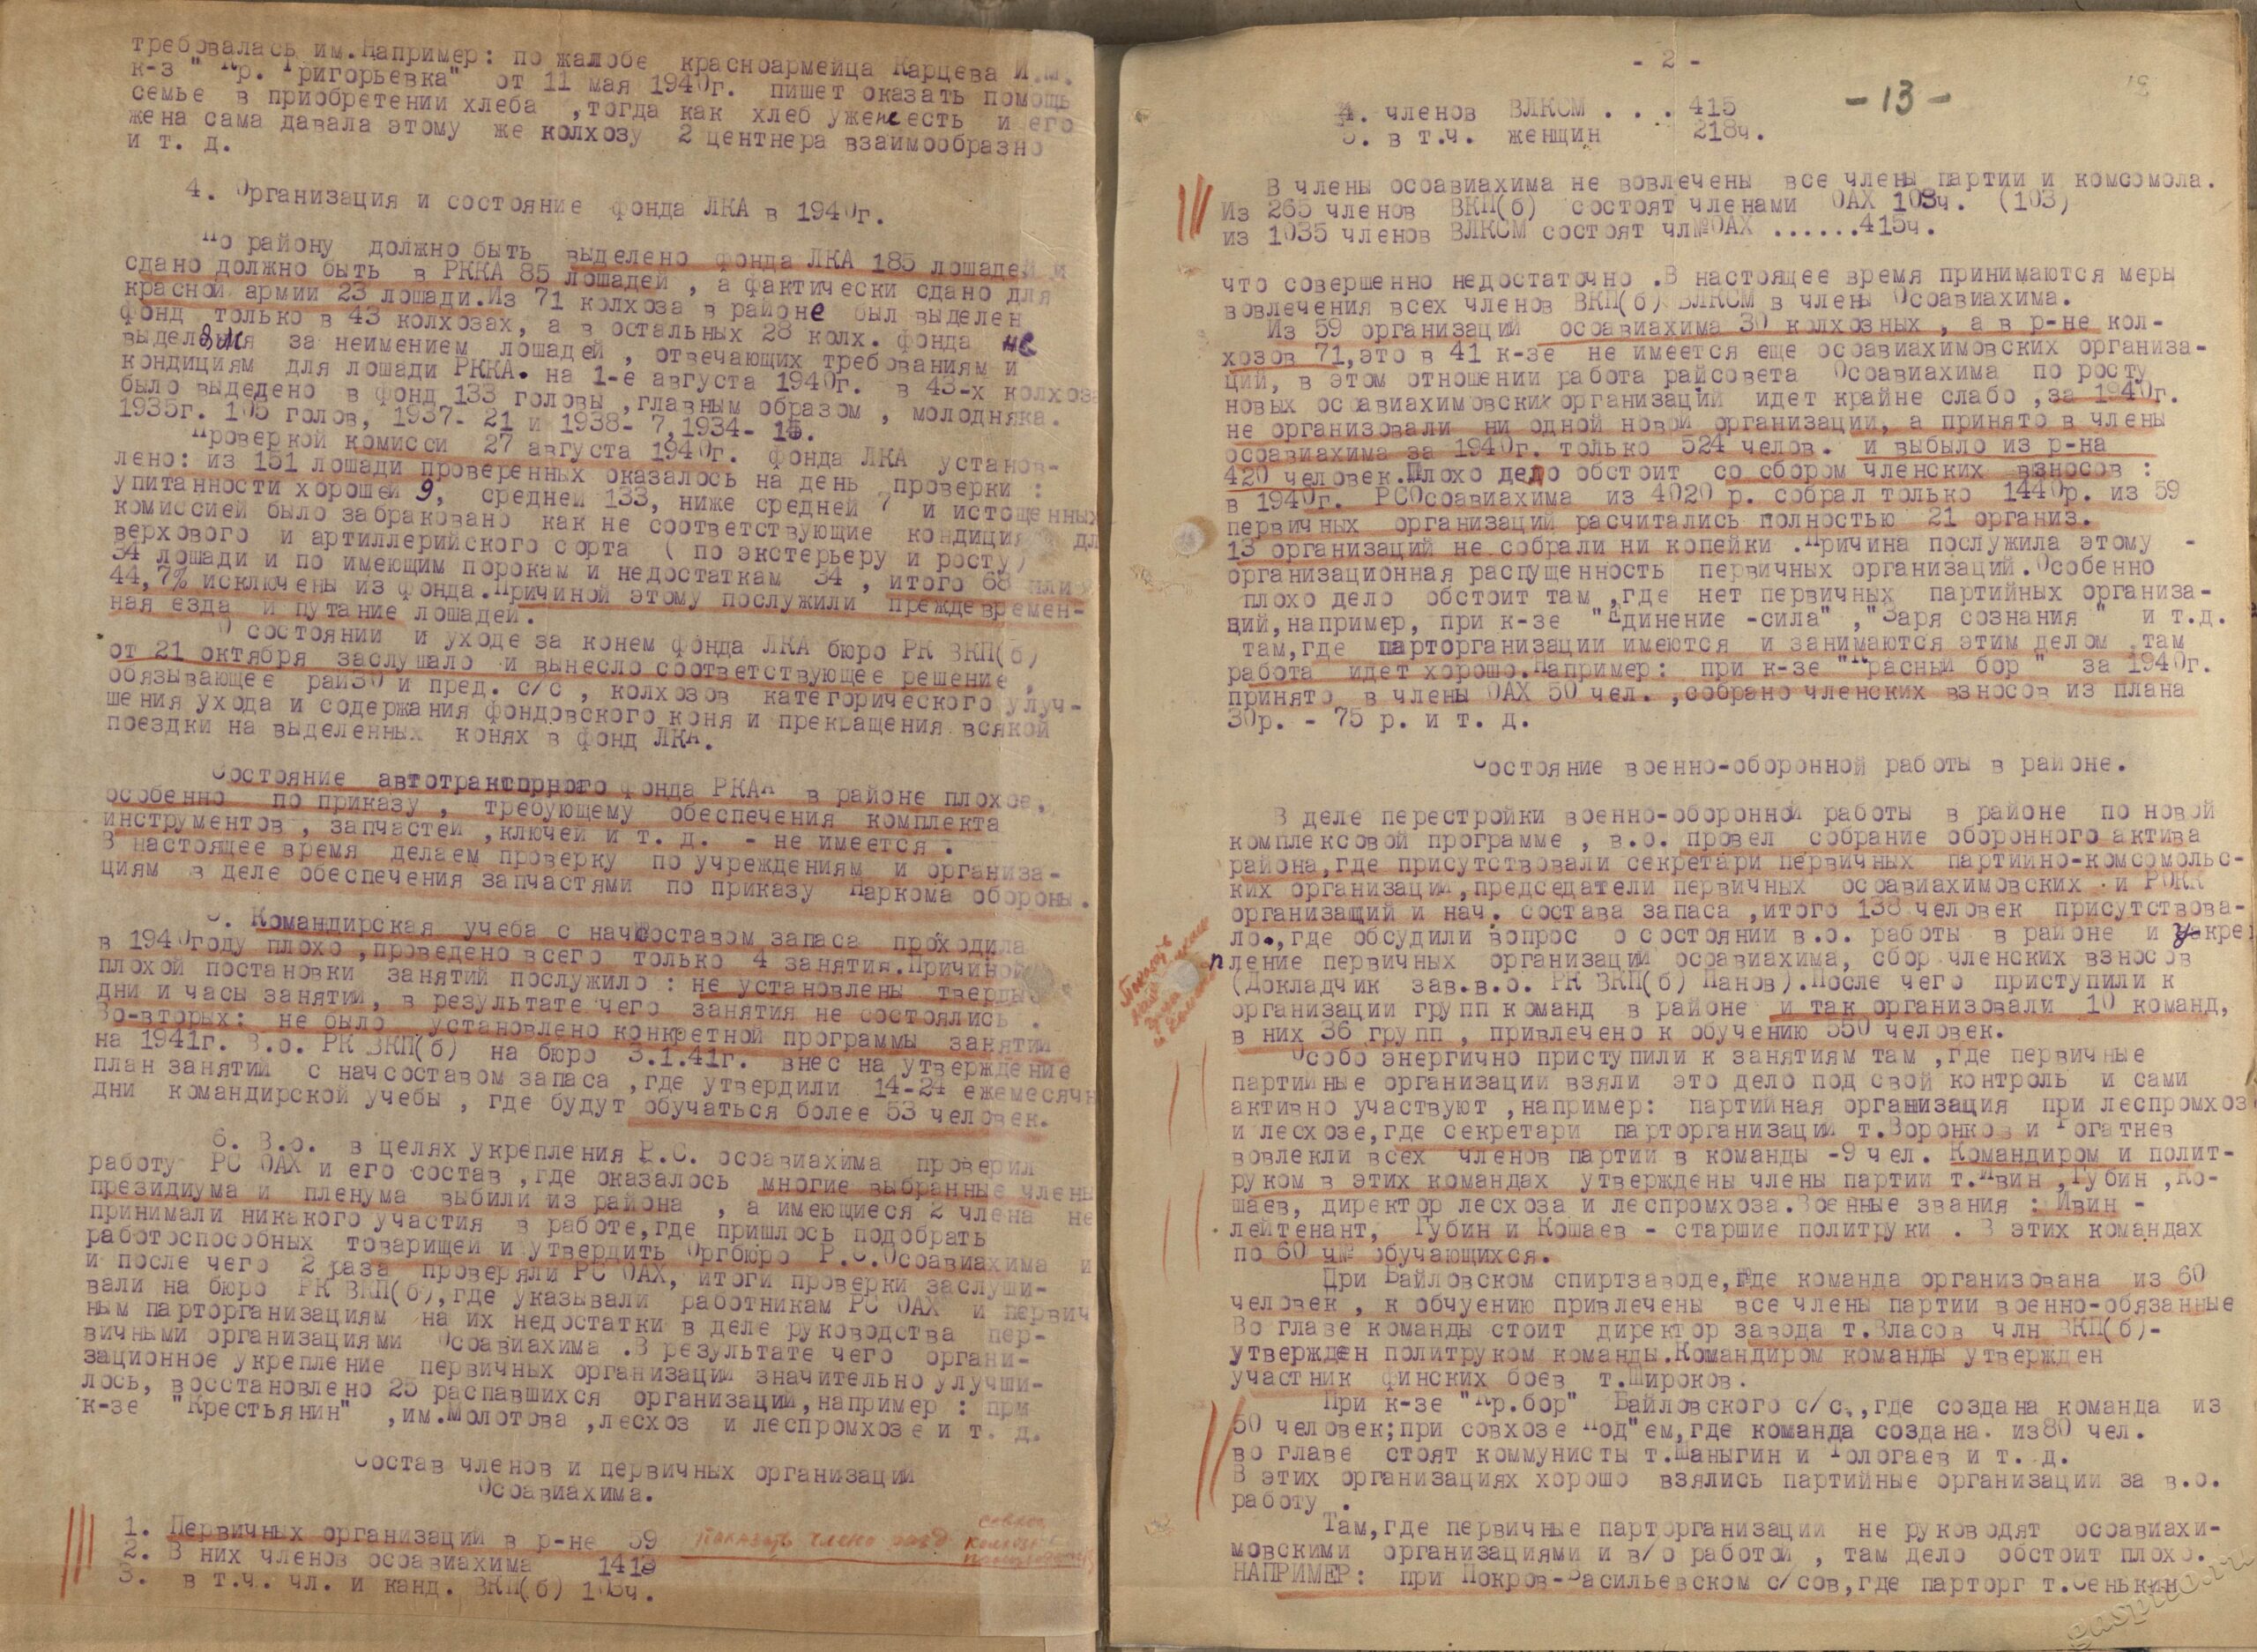 требовалась им.Например: по жалобе красноармейца Карцева И.М.
к-з " Кр. Григорьевка" от 11 мая 1940г. пишет оказать помощь
семье в приобретении хлеба ,тогда как хлеб уже не есть и его
жена сама давала этому же колхозу 2 центнера взаимообразно
и т. д.
4. Организация и состояние фонда ЛКА в 1940г.
По району должно быть выделено фонда ЛКА 185 лошадей и
сдано должно быть в РККА 85 лошадей , а фактически сдано для
красной армии 23 лошади.Из 71 колхоза в районе был выделен
фонд только в 43 колхозах, а в остальных 28 колх. фонда не
выделялся за неимением лошадей , отвечающих требованиям и
кондициям для лошади РККА. на 1-е августа 1940г. в 43-х колхоза
было выдедено в фонд 133 головы ,главным образом , молодняка.
1935г. 105 голов, 1937- 21 и 1938- 7,1934- 15.
Проверкой комисси 27 августа 1940г. фонда ЛКА установ-
лено: из 151 лошади проверенных оказалось на день проверки :
упитанности хорошей 9, средней 133, ниже средней 7 и истощенных
комиссией было забраковано как не соответствующие кондиция дл
верхового и артиллерийского сорта ( по экстерьеру и росту)
34 лошади и по имеющим порокам и недостаткам 34 , итого 68 или
44,7% исключены из фонда.Причиной этому послужили преждевремен-
ная езда и путание лошадей.
О состоянии и уходе за конем фонда ЛКА бюро РК ВКП(б)
от 21 октября заслушало и вынесло соответствующее решение ,
обязывающее райЗО и пред. с/с , колхозов категорического улуч-
шения ухода и содержания фондовского коня и прекращения всякой
поездки на выделенных конях в фонд ЛКА.
Состояние автотранторного фонда РКАА в районе плохое,
особенно по приказу , требующему обеспечения комплекта
инструментов , запчастей ,ключей и т. д. - не имеется .
В настоящее время делаем проверку по учреждениям и организа-
циям в деле обеспечения запчастями по приказу Наркома обороны.
5. Командирская учеба с начсоставом запаса проходила
в 1940году плохо ,проведено всего только 4 занятия.Причиной
плохой постановки занятий послужило : не установлены тверды
дни и часы занятий, в результате чего занятия не состоялись .
Во-вторых: не было установлено конкретной программы занятий
на 1941г. В.о. РК ВКП(б) на бюро 3.1.41г. внес на утверждение
план занятий с начсоставом запаса ,где утвердили 14-24 ежемесячн
дни командирской учебы , где будут обучаться более 53 человек.
6. В.о. в целях укрепления Р.С. осоавиахима проверил
работу РС ОАХ и его состав ,где оказалось многие выбранные члены
президиума и пленума выбили из района , а имеющиеся 2 члена не
принимали никакого участия в работе,где пришлось подобрать
работоспособных товарищей и утвердить Оргбюро Р.С.Осоавиахима и
и после чего 2 раза проверяли РС ОАХ, итоги проверки заслуши-
вали на бюро РК ВКП(б),где указывали работникам РС ОАХ и первич
ным парторганизациям на их недостатки в деле руководства пер-
вичными организациями Осоавиахима .В результате чего органи-
зационное укрепление первичных организаций значительно улучши-
лось, восстановлено 25 распавшихся организаций,например : при
к-зе "Крестьянин" ,им.Молотова ,лесхоз и леспромхозе и т. д.
Состав членов и первичных организаций
Осоавиахима.
1. Первичных организаций в р-не 59
2. В них членов осоавиахима 1413
3. в т.ч. чл. и канд. ВКП(б) 103ч.
- 2 -
-13-
4. членов ВЛКСМ . . . 415
5. в т.ч. женщин 218ч.
В члены осоавиахима не вовлечены все члены партии и комсомола.
Из 265 членов ВКП(б) состоят членами ОАХ 103ч. (103)
из 1035 членов ВЛКСМ состоят чл ОАХ ......415ч.
что совершенно недостаточно .В настоящее время принимаются меры
вовлечения всех членов ВКП(б) ВЛКСМ в члены Осоавиахима.
Из 59 организаций осоавиахима 30 колхозных , а в р-не кол-
хозов 71,это в 41 к-зе не имеется еще осоавиахимовских организа-
ций, в этом отношении работа райсовета Осоавиахима по росту
новых осоавиахимовских организаций идет крайне слабо ,за 1940г.
не организовали ни одной новой организации, а принято в члены
осоавиахима за 1940г. только 524 челов. и выбыло из р-на
420 человек.Плохо дело обстоит со сбором членских взносов :
в 1940г. РСОсоавиахима из 4020 р. собрал только 1440р. из 59
первичных организаций расчитались полностью 21 организ.
13 организаций не собрали ни копейки .Причина послужила этому -
организационная распущенность первичных организаций.Особенно
плохо дело обстоит там ,где нет первичных партийных организа-
ций,например, при к-зе "Единение -сила" ,"Заря сознания " и т.д.
там,где парторганизации имеются и занимаются этим делом там
работа идет хорошо.Например: при к-зе "Красный бор " за 1940г.
принято в члены ОАХ 50 чел. ,собрано членских взносов из плана
30р. - 75 р. и т. д.
Состояние военно-оборонной работы в районе.
В деле перестройки военно-оборонной работы в районе по новой
комплексовой программе , в.о. провел собрание оборонного актива
района,где присутствовали секретари первичных партийно-комсомольс-
ких организаций,председатели первичных осоавиахимовских и РОКК
организащий и нач. состава запаса ,итого 138 человек присутствова-
ло.,где обсудили вопрос о состоянии в.о. работы в районе и укре
пление первичных организаций осоавиахима, сбор членских взносов
(Докладчик зав.в.о. РК ВКП(б) Панов).После чего приступили к
организации групп команд в районе и так организовали 10 команд,
в них 36 групп , привлечено к обучению 550 человек.
Особо энергично приступили к занятиям там ,где первичные
партийные организации взяли это дело под свой контроль и сами
активно участвуют ,например: партийная организация при леспромхоз
и лесхозе,где секретари парторганизаций т.Воронков и Рогатнев
вовлекли всех членов партии в команды -9 чел. Командиром и полит-
руком в этих командах утверждены члены партии т.Ивин ,Губин ,Ко-
шаев, директор лесхоза и леспромхоза.Военные звания : Ивин -
лейтенант, Губин и Кошаев - старшие политруки . В этих командах
по 60 обучающихся.
При Байловском спиртзаводе,где команда организована из 60
человек , к обчуению привлечены все члены партии военно-обязанные
Во главе команды стоит директор завода т.Власов члн ВКП(б)-
утвержден политруком команды.Командиром команды утвержден
участник финских боев т.Широков.
При к-зе "Кр.бор" Байловского с/с.,где создана команда из
50 человек;при совхозе Под"ем,где команда создана из80 чел.
во главе стоят коммунисты т.Шаныгин и Гологаев и т. д.
В этих организациях хорошо взялись партийные организации за в.о.
работу .
Там,где первичные парторганизации не руководят осоавиахи-
мовскими организациями и в/о работой , там дело обстоит плохо.
НАПРИМЕР: при Покров-Васильевском с/сов,где парторг т.Сенькин
gaspito.ru